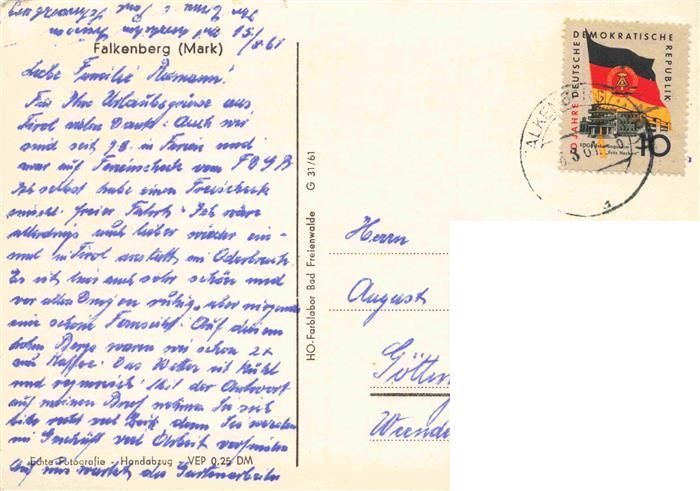 Falkenberg (Mark)
15/8.61
Liebe Familie
Für Ihre Urlaubsgrüsse aus
Tirol vielen Dank! Auch wir
sind seit 9.8. in Ferien und
zwar auf Ferienscheck vom FDGB
Ich selbst habe einen Freischeck
einschl. freier Fahrt. Ich wäre
allerdings auch lieber wieder ein-
mal in Tirol anstatt im Oderbruch.
Es ist hier auch sehr schön und
vor allen Dingen ruhig, aber nirgends
eine schöne Fernsicht. Auf diesem
hohen Berge waren wir schon 2x
zum Kaffee. Das Wetter ist kühl
und regnerisch. Mit der Antwort
auf meinen Brief nehmen Sie sich
bitte recht viel Zeit, denn Sie werden
im Geschäft viel Arbeit vorfinden
Auf uns wartet die Gartenarbeit.
Echte Fotografie - Handabzug - VEP 0.25 DM
HO-Farblabor Bad Freienwalde G 31/61
10 JAHRE DEUTSCHE DEMOKRATISCHE REPUBLIK
FDGB
Fritz Heckert
10
Herrn
August
Götting
Weende